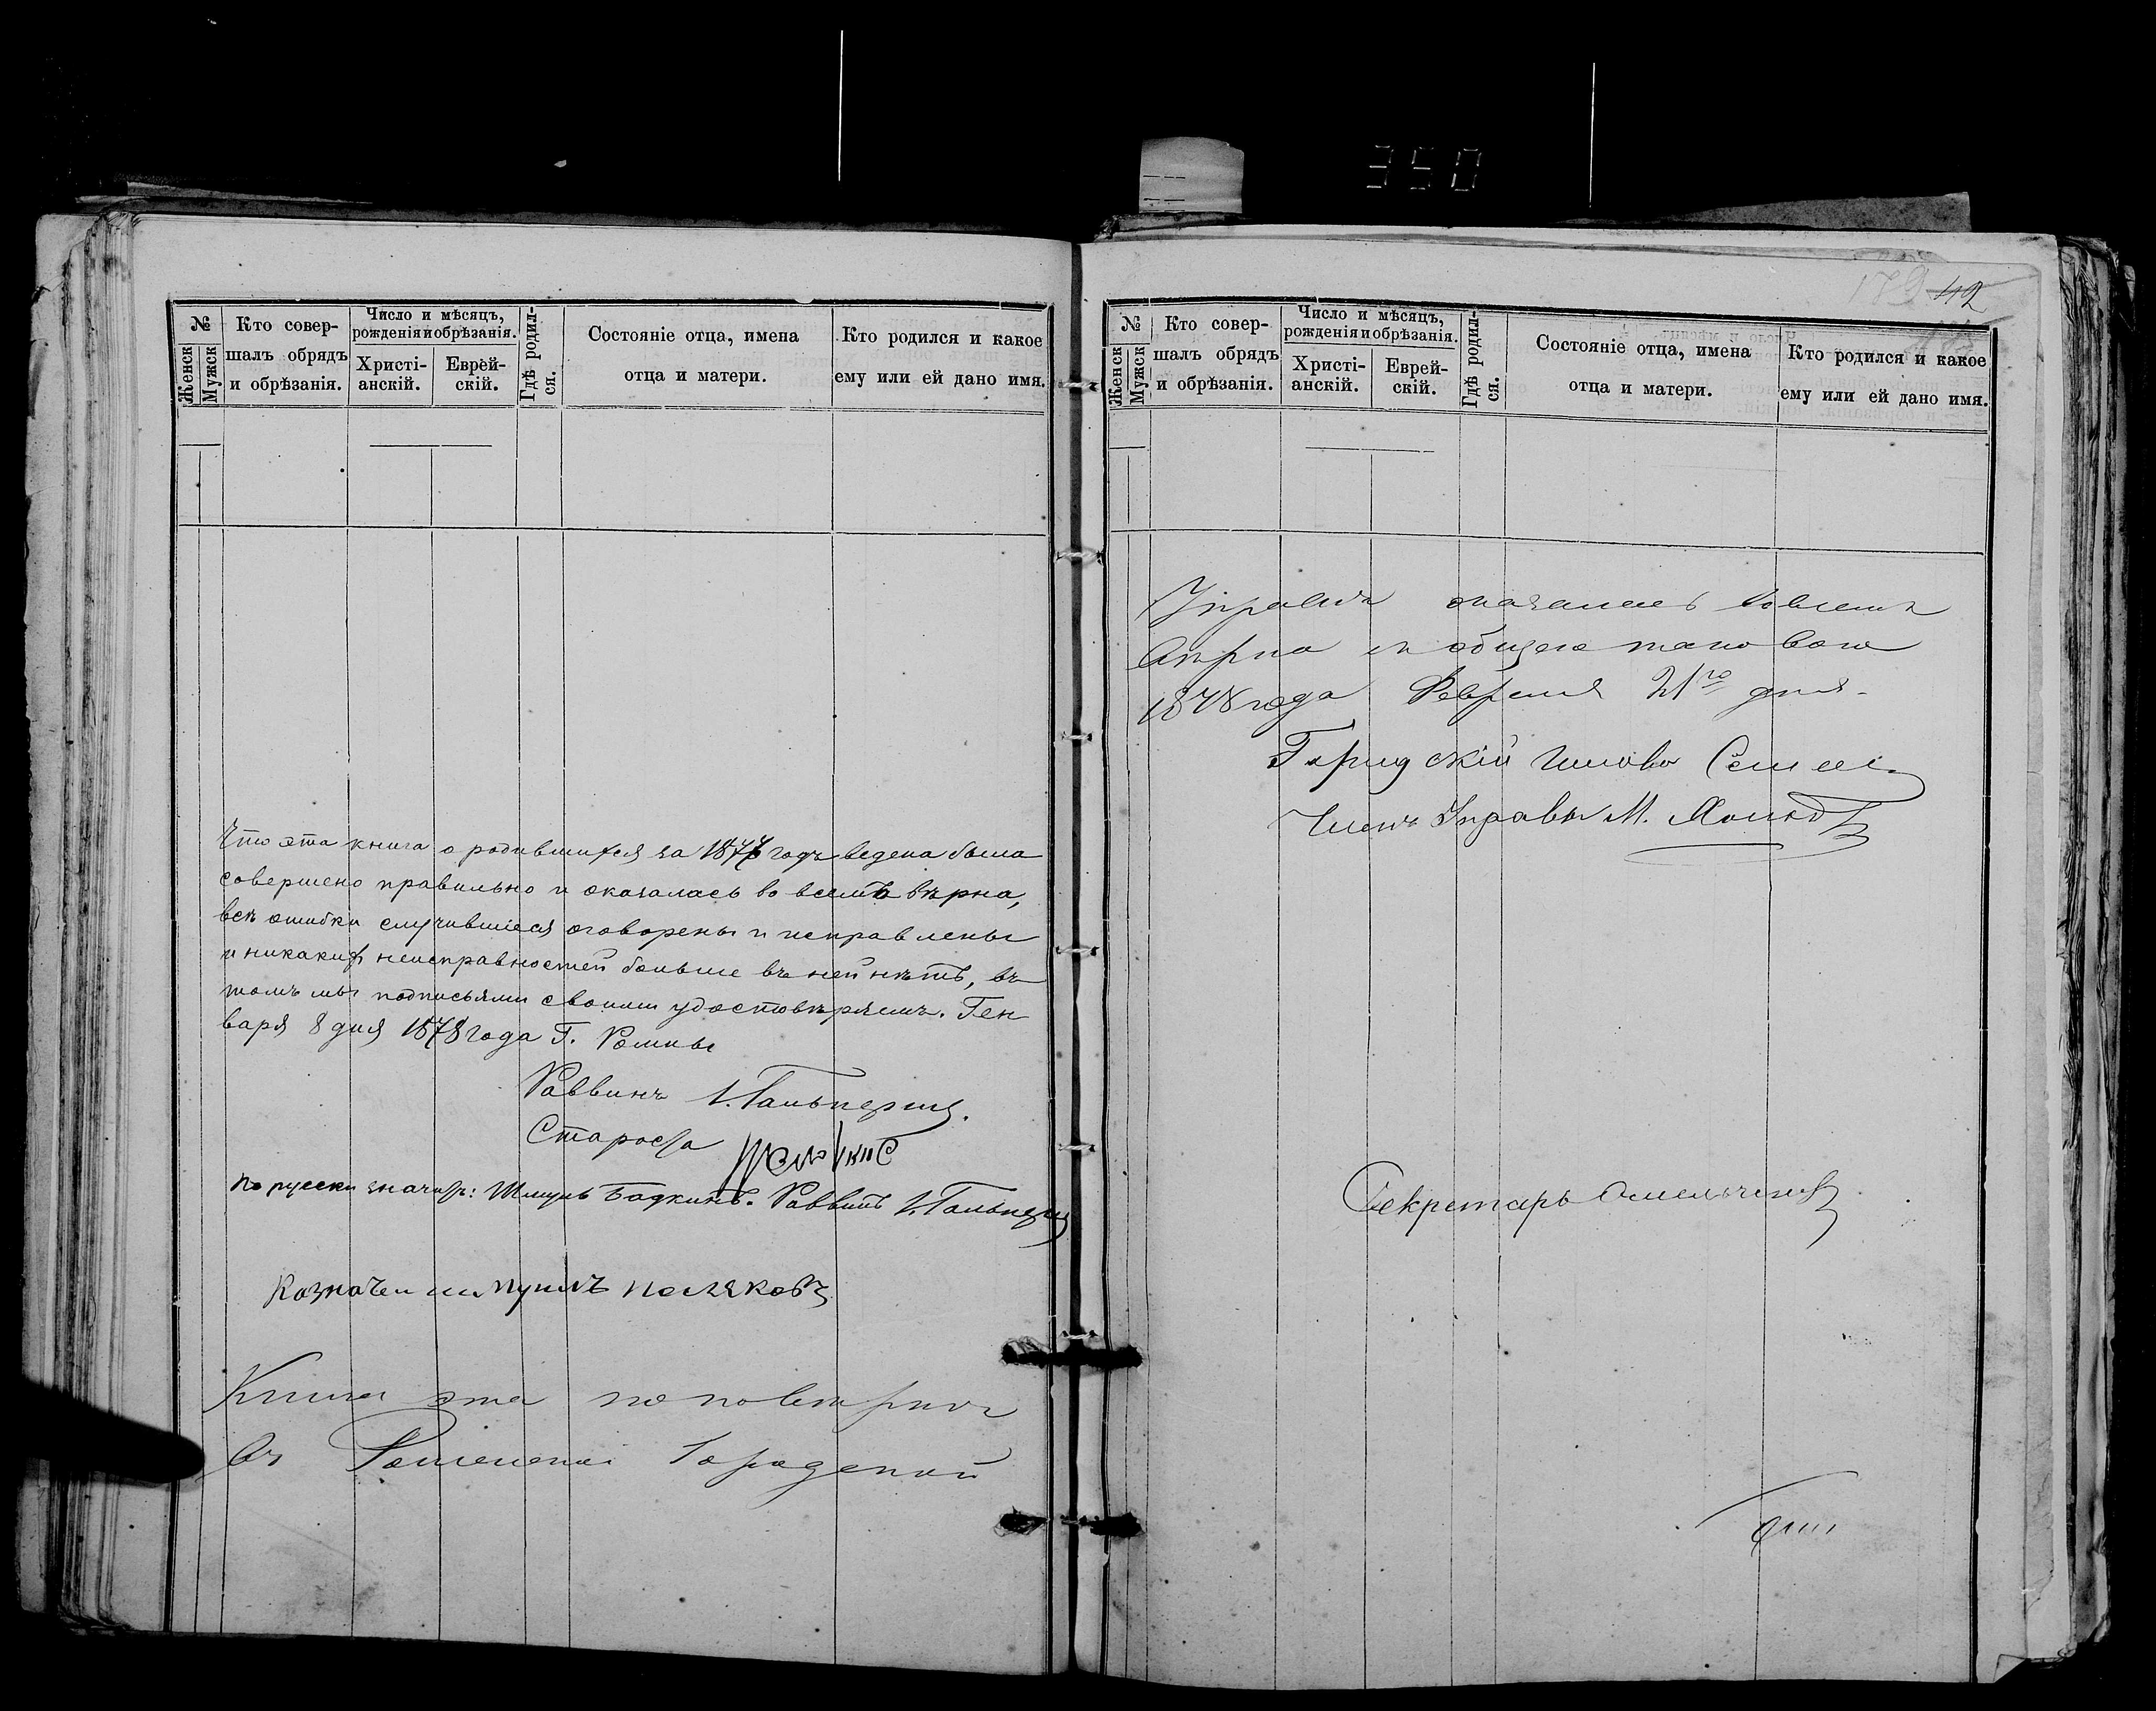 350
№
Женск
Мужск
Кто совер-
шалъ обрядъ
и обрѣзанія.
Число и мѣсяцъ,
рожденія и обрѣзанія.
Христі-
анскій.
Еврей-
скій.
Гдѣ родил-
ся.
Состояніе отца, имена
отца и матери.
Кто родился и какое
ему или ей дано имя.
Что эта книга о родившихся за 1877 годъ ведена была
совершено правильно и оказалась во всемъ вѣрна,
всѣ ошибки случившіеся оговорены и исправлены
и никакихъ неисправностей больше въ ней нѣтъ, въ
томъ мы подписьями своими удостовѣряемъ. Ген
варя 8 дня 1878 года Г. Ромны
Раввинъ І. Гальперинъ.
Староста
По русски значитъ: Шмуль Бадкинъ. Раввинъ І. Гальперинъ
Казначей Поляковъ
Книга эта по повѣркѣ
въ Роменской Городской
42
№
Женск
Мужск
Кто совер-
шалъ обрядъ
и обрѣзанія.
Число и мѣсяцъ,
рожденія и обрѣзанія.
Христі-
анскій.
Еврей-
скій.
Гдѣ родил-
ся.
Состояніе отца, имена
отца и матери.
Кто родился и какое
ему или ей дано имя.
Управѣ оказалась во всемъ
вѣрна
1878 года Февраля 21го дня.
Городской Голова
Членъ Управы М.
Секретарь Омельченко